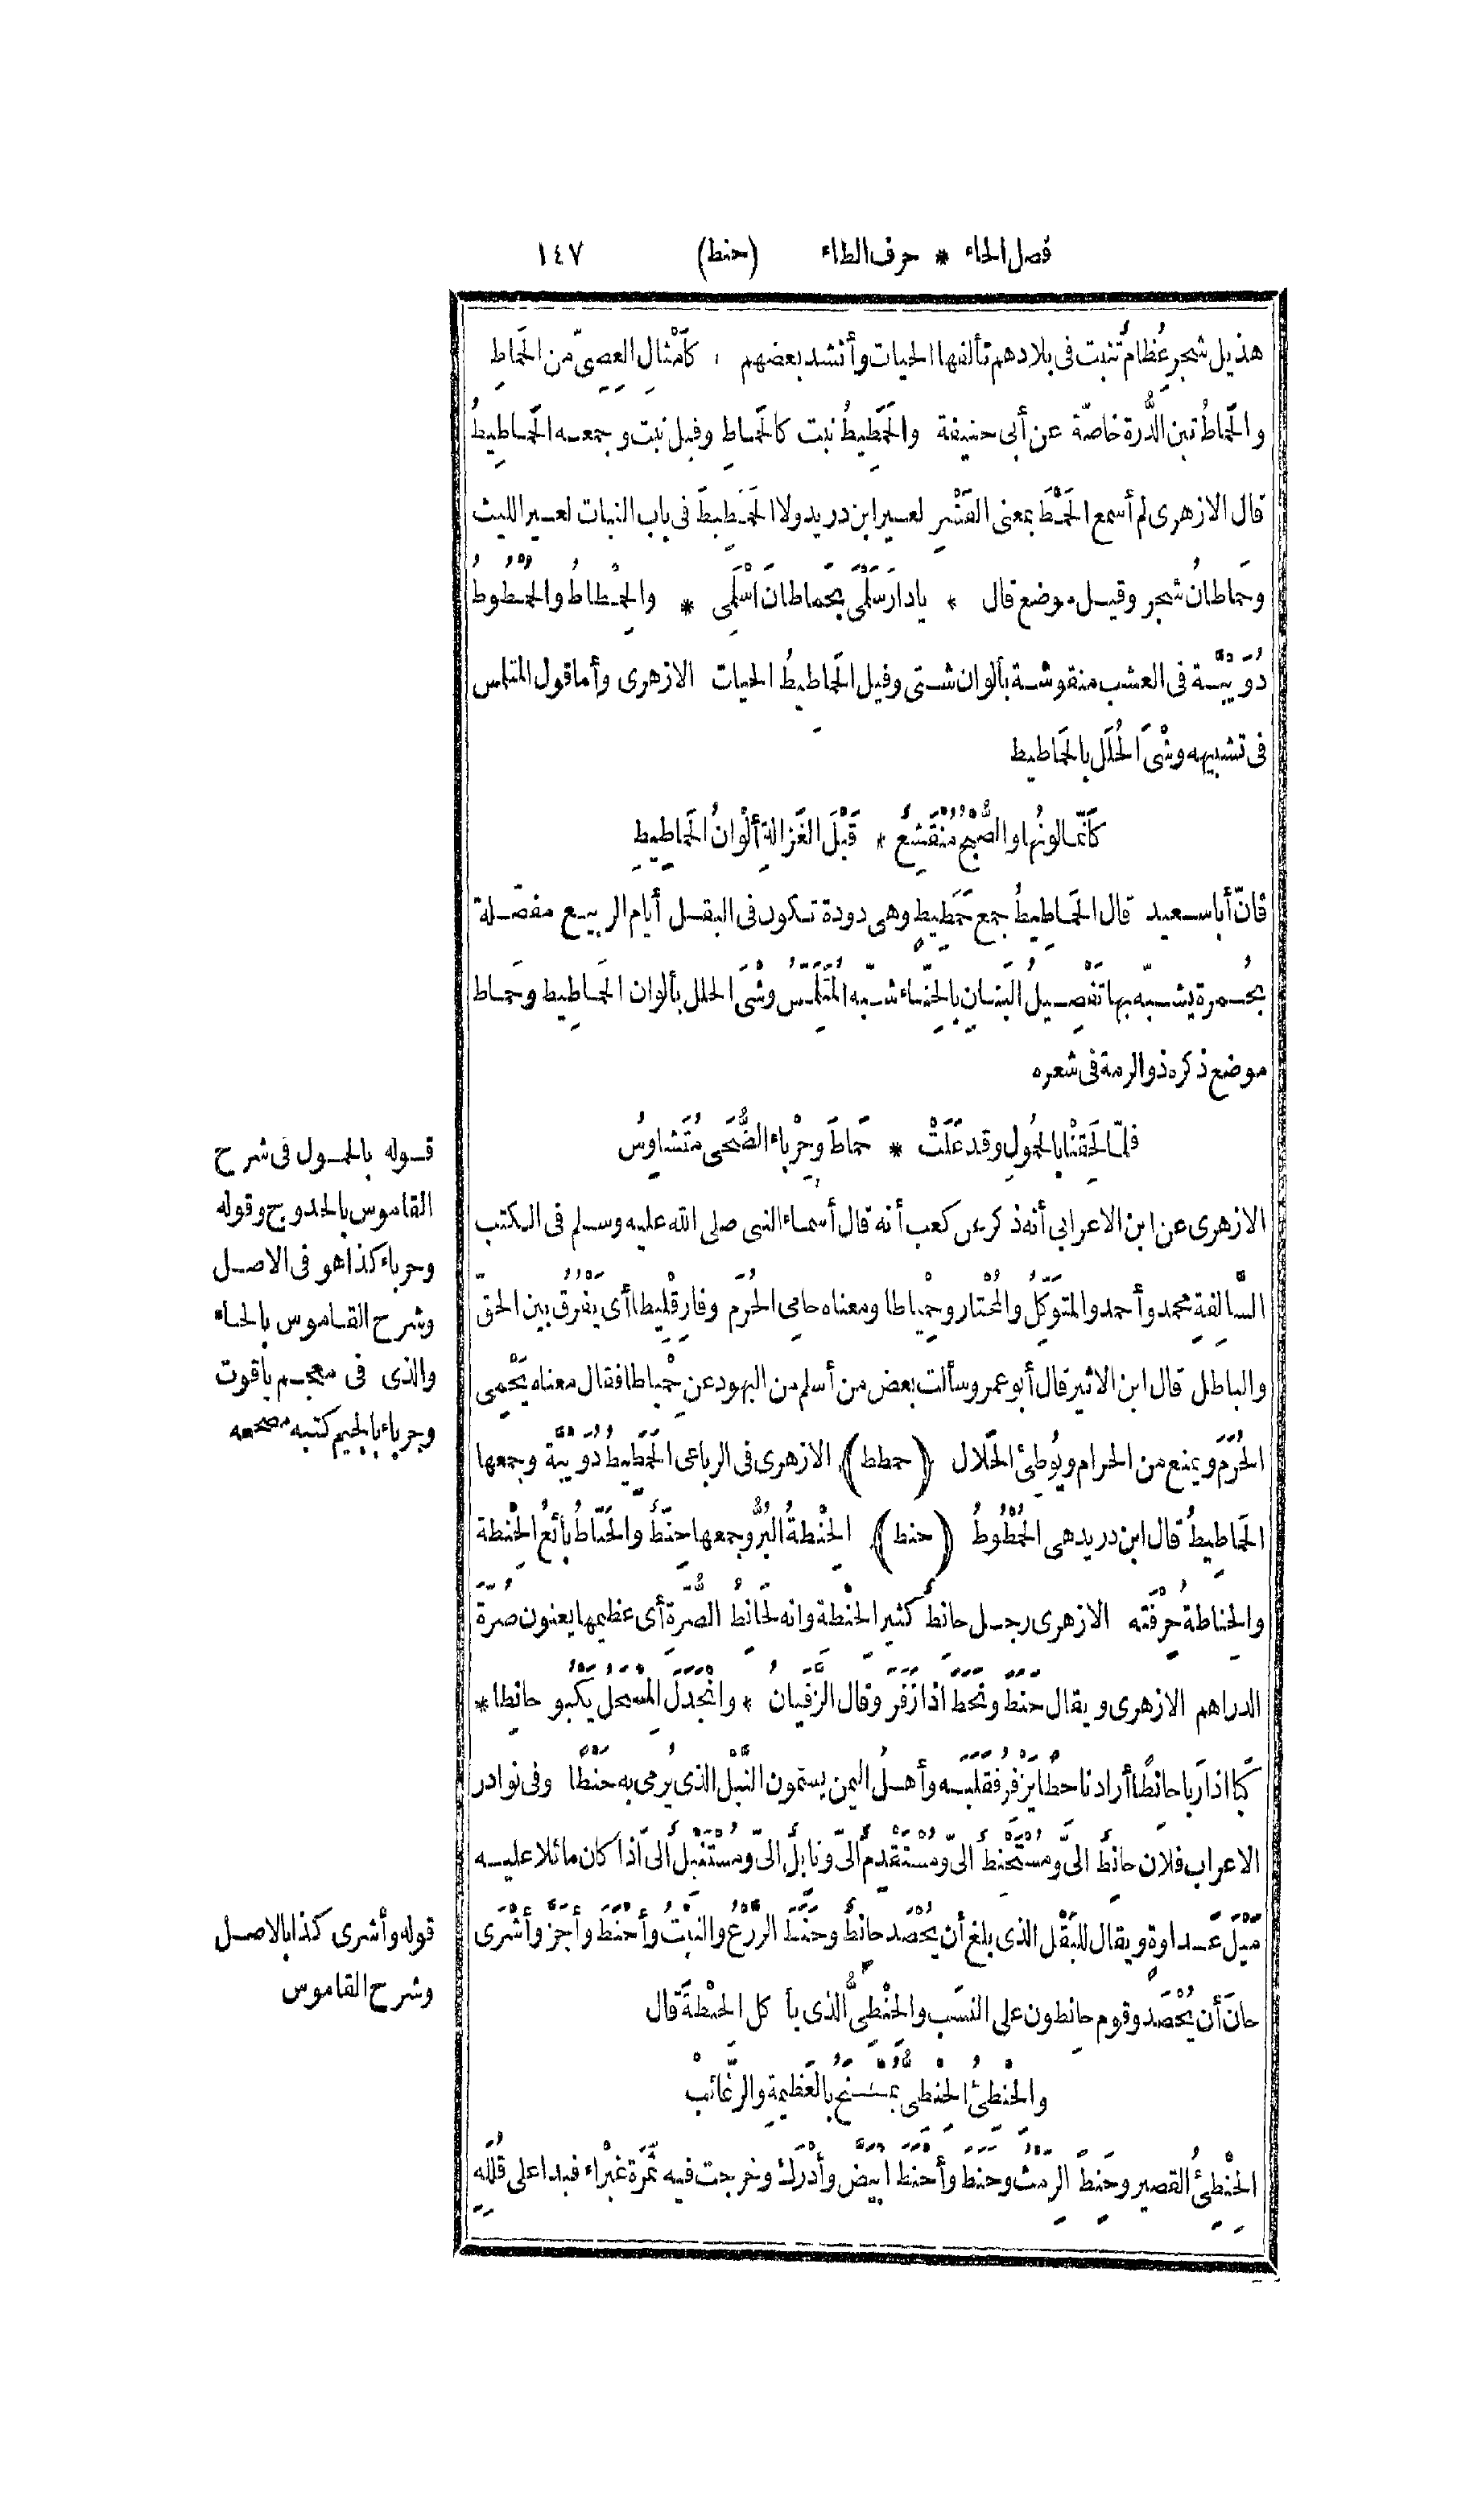 فصل الحاء * حرف الطاء (حنط) ١٤٧
هذيل شجر عِظامٌ تنبت فى بلادهم تألفها الحيات وأنشد بعضهم * كأَمْثالِ العِصِىّ من الحَماطِ
والحَماطُ تبن الذُّرة خاصّة عن أبى حنيفة والحَمَطِيطُ نبت كالحَماطِ وقيل نبت وجمعه الحَماطِيطُ
قال الازهرى لم أسمع الحَمْطَ بمعنى القَشْرِ لغير ابن دريد ولا الحَمَطِيطَ فى باب النبات لغير الليث
وحَماطانُ شجر وقيل موضع قال * يادارَ سَلْمَى بحَماطانَ اسْلَمِى * والحِمْطاطُ والحُمْطُوطُ
دُوَيْبَّة فى العشب منقوشة بألوان شتى وقيل الحَماطِيطُ الحيات الازهرى وأما قول المتلمس
فى تشبيهه وشْىَ الحُلَل بالحَماطيط
كأَنّما لونُها والصُّبْحُ مُنْقَشِعٌ * قَبْلَ الغَزالةِ أَلْوانُ الحَماطِيطِ
فانّ أبا سعيد قال الحَماطِيطُ جمع حَمَطِيطٍ وهى دودة تكون فى البقل أيام الربيع مفصّلة
بحُمرة يشبّه بها تَفْصِيلُ البَنانِ بالحِنّاء شبّه المُتَلَمِّسُ وشْىَ الحلل بألوان الحَماطِيط وحَماط
موضع ذكره ذو الرمة فى شعره
فلمّا لَحِقْنا بالحُمُولِ وقد عَلَتْ * حَماطَ وحِرْباء الضُّحَى مُتَشاوِسُ
الازهرى عن ابن الاعرابى أنه ذكر عن كعب أنه قال أسماء النبى صلى الله عليه وسلم فى الكتب
السّالِفةِ محمد وأحمد والمتوَكِّلُ والمُخْتار وحِمْياطا ومعناه حامِى الحُرَم وفارِقْلِيطا أى يَفْرُقُ بين الحقّ
والباطل قال ابن الاثير قال أبو عمرو سألت بعض من أسلم من اليهود عن حِمْياطا فقال معناه يَحْمِى
الحُرَمَ ويمنع من الحرام ويُوطِئُ الحَلال (حمطط) الازهرى فى الرباعى الحَمَطِيطُ دُوَيْبّة وجمعها
الحَماطِيطُ قال ابن دريد هى الحُمْطُوطُ (حنط) الحِنْطةُ البُرُّ وجمعها حِنَطٌ والحَنّاطُ بائعُ الحِنْطة
والحِناطة حِرْفَته الازهرى رجل حانِطٌ كثير الحِنْطة وانه لحَانِطُ الصُّرّة أى عظيمها يعنون صُرّةَ
الدراهم الازهرى ويقال حَنَطَ ونَحَطَ اذا زَفَرَ وقال الزَّفَيانُ * وانْجَدَلَ المِسْحَلُ يَكْبُو حانِطا *
كَبا اذا رَبا حانِطًا أراد ناحطًا يَزْفِر فقَلَبَه وأهلُ اليمن يسمون النَّبْل الذى يُرمى به حَنْطًا وفى نوادر
الاعراب فلان حانِطٌ الىَّ ومُسْتَحْنِطٌ الىّ ومُسْتَقْدِمٌ الىّ ونابِلٌ الىّ ومُسْتَنْبِلٌ الىّ اذا كان مائلا عليه
مَيْلَ عَداوةٍ ويقال للبَقْل الذى بلغ أن يُحْصَد حانِطٌ وحَنَطَ الزَّرْعُ والنَّبْتُ وأَحْنَطَ وأَجَزَّ وأَشْرَى
حانَ أن يُحْصَد وقوم حانِطون على النسَب والحَنْطِىُّ الذى يأكل الحِنْطةَ قال
والحِنْطِئُ الحِنْطِىُّ يُمْـ ـنَحُ بالعَظيمةِ والرَّغائبْ
الحِنْطِئُ القصير وحَنِطَ الرِّمْثُ وحَنَطَ وأَحْنَطَ ابْيَضَّ وأَدْرَكَ وخرجت فيه ثمَرة غَبْراء فبدا على قُلَلِه
قوله بالحمول فى شرح
القاموس بالحدوج وقوله
وحرباء كذا هو فى الاصل
وشرح القاموس بالحاء
والذى فى معجم ياقوت
وجرباء بالجيم كتبه مصححه
قوله وأشرى كذا بالاصل
وشرح القاموس